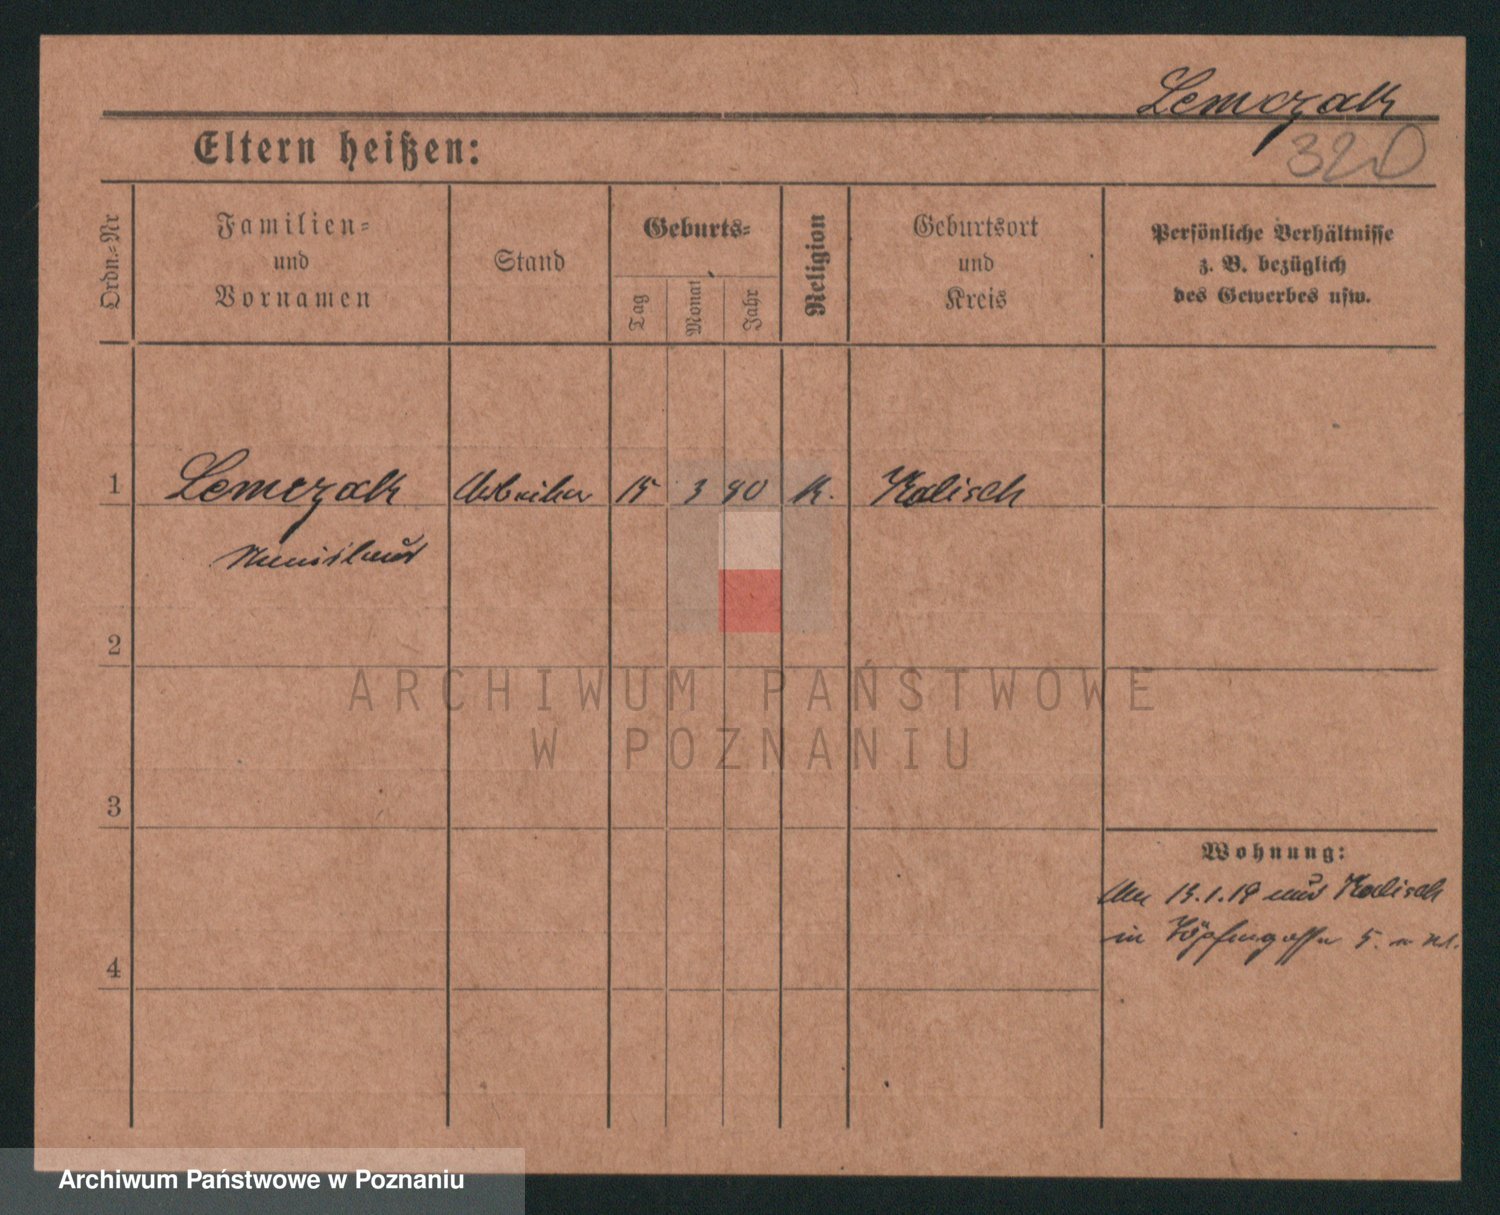 Lemczak
320
Eltern heißen:
Ordn.-Nr
Familien-
und
Vornamen
Stand
Geburts-
Tag
Monat
Jahr
Religion
Geburtsort
und
Kreis
Persönliche Verhältnisse
z. B. bezüglich
des Gewerbes usw.
1 Lemczak Arbeiter 15 3 90 K. Kalisch
2
ARCHIWUM PAŃSTWOWE
W POZNANIU
3
Wohnung:
1.19 aus Kalisch
in Töpfergasse 5.
4
Archiwum Państwowe w Poznaniu